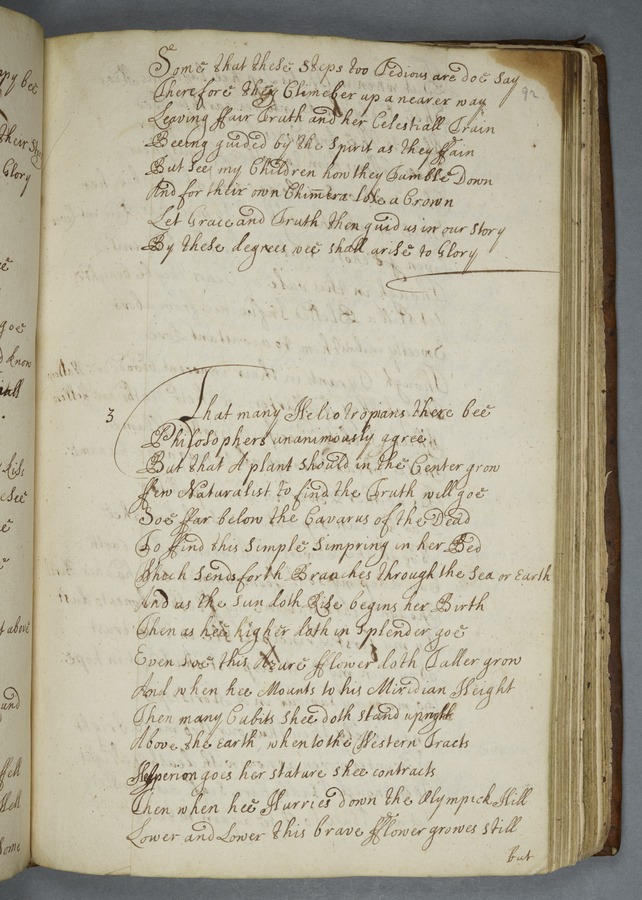 92
Some that these Steps too Tedious are doe say
Therefore they Climeber up a nearer way
Leaving ffair Truth and her Celestiall Train
Beeing guided by the Spirit as they ffain
But see my Children how they Tumble Down
And for their own Chimera lose a Crown
Let Grace and Truth then guid us in our Story
By these degrees wee shall arise to Glory
3
That many Heliotropians there bee
Philosophers unanimously agree
But that A plant should in the Center grow
ffew Naturalist to find the Truth will goe
Soe ffar below the Cavarns of the Dead
To ffind this Simple Simpring in her Bed
Which Sends forth Branches through the Sea or Earth
And as the Sun doth Rise begins her Birth
Then as hee higher doth in Splender goe
Even soe this Azure fflower doth Taller grow
And when hee Mounts to his Miridian Height
Then many Cubits shee doth stand upright
Above the Earth, when to the Western Tracts
Hesperion goes her stature shee contracts
Then when hee Hurries down the Olympick Hill
Lower and Lower this brave fflower growes still
but